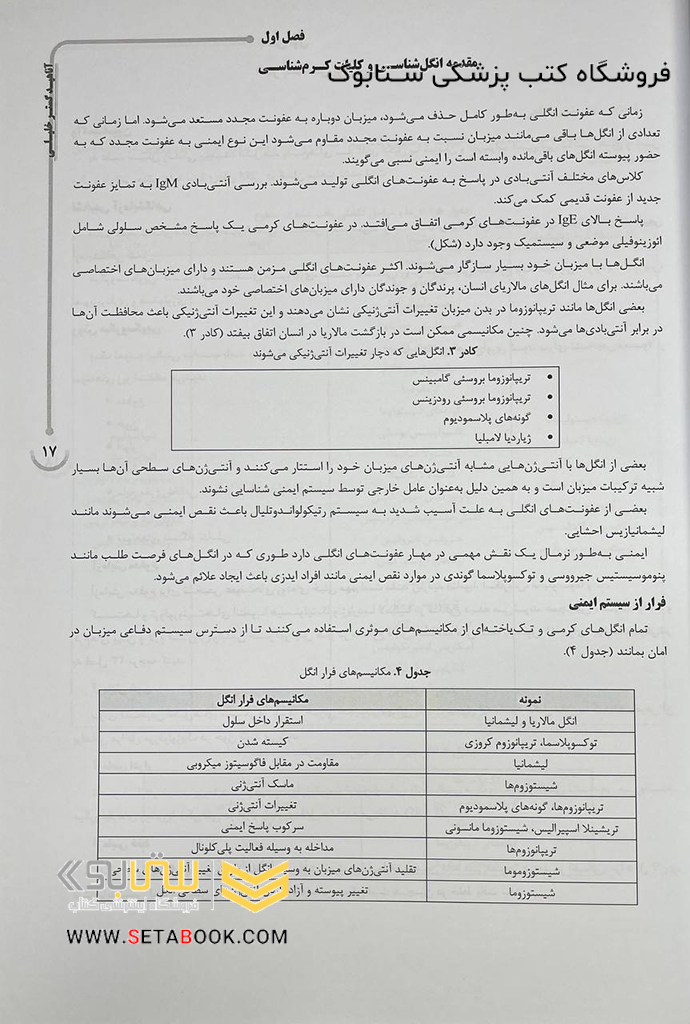 فصل اول
فروشگاه کتب پزشکی ستابوک
مقدمه انگل‌شناسی و کلیات کرم‌شناسی
زمانی که عفونت انگلی به‌طور کامل حذف می‌شود، میزبان دوباره به عفونت مجدد مستعد می‌شود. اما زمانی که
تعدادی از انگل‌ها باقی می‌مانند میزبان نسبت به عفونت مجدد مقاوم می‌شود این نوع ایمنی به عفونت مجدد که به
حضور پیوسته انگل‌های باقی‌مانده وابسته است را ایمنی نسبی می‌گویند.
کلاس‌های مختلف آنتی‌بادی در پاسخ به عفونت‌های انگلی تولید می‌شوند. بررسی آنتی‌بادی IgM به تمایز عفونت
جدید از عفونت قدیمی کمک می‌کند.
پاسخ بالای IgE در عفونت‌های کرمی اتفاق می‌افتد. در عفونت‌های کرمی یک پاسخ مشخص سلولی شامل
ائوزینوفیلی موضعی و سیستمیک وجود دارد (شکل).
انگل‌ها با میزبان خود بسیار سازگار می‌شوند. اکثر عفونت‌های انگلی مزمن هستند و دارای میزبان‌های اختصاصی
می‌باشند. برای مثال انگل‌های مالاریای انسان، پرندگان و جوندگان دارای میزبان‌های اختصاصی خود می‌باشند.
بعضی انگل‌ها مانند تریپانوزوما در بدن میزبان تغییرات آنتی‌ژنیکی نشان می‌دهند و این تغییرات آنتی‌ژنیکی باعث محافظت آن‌ها
در برابر آنتی‌بادی‌ها می‌شود. چنین مکانیسمی ممکن است در بازگشت مالاریا در انسان اتفاق بیفتد (کادر ۳).
کادر ۳. انگل‌هایی که دچار تغییرات آنتی‌ژنیکی می‌شوند
• تریپانوزوما بروسئی گامبینس
• تریپانوزوما بروسئی رودزینس
• گونه‌های پلاسمودیوم
• ژیاردیا لامبلیا
۱۷
بعضی از انگل‌ها با آنتی‌ژن‌هایی مشابه آنتی‌ژن‌های میزبان خود را استتار می‌کنند و آنتی‌ژن‌های سطحی آن‌ها بسیار
شبیه ترکیبات میزبان است و به همین دلیل به‌عنوان عامل خارجی توسط سیستم ایمنی شناسایی نشوند.
بعضی از عفونت‌های انگلی به علت آسیب شدید به سیستم رتیکولواندوتلیال باعث نقص ایمنی می‌شوند مانند
لیشمانیازیس احشایی.
ایمنی به‌طور نرمال یک نقش مهمی در مهار عفونت‌های انگلی دارد طوری که در انگل‌های فرصت طلب مانند
پنوموسیستیس جیرووسی و توکسوپلاسما گوندی در موارد نقص ایمنی مانند افراد ایدزی باعث ایجاد علائم می‌شود.
فرار از سیستم ایمنی
تمام انگل‌های کرمی و تک‌یاخته‌ای از مکانیسم‌های موثری استفاده می‌کنند تا از دسترس سیستم دفاعی میزبان در
امان بمانند (جدول ۴).
جدول ۴. مکانیسم‌های فرار انگل
نمونه مکانیسم‌های فرار انگل
انگل مالاریا و لیشمانیا استقرار داخل سلول
توکسوپلاسما، تریپانوزوم کروزی کیسته شدن
لیشمانیا مقاومت در مقابل فاگوسیتوز میکروبی
شیستوزوم‌ها ماسک آنتی‌ژنی
تریپانوزوم‌ها، گونه‌های پلاسمودیوم تغییرات آنتی‌ژنی
تریشینلا اسپیرالیس، شیستوزوما مانسونی سرکوب پاسخ ایمنی
تریپانوزوم‌ها مداخله به وسیله فعالیت پلی‌کلونال
شیستوزوموما تقلید آنتی‌ژن‌های میزبان به وسیله انگل تغییر آنتی‌ژن‌های
شیستوزوما تغییر پیوسته و انگل
ستابوک
فروشگاه اینترنتی کتاب
WWW.SETABOOK.COM